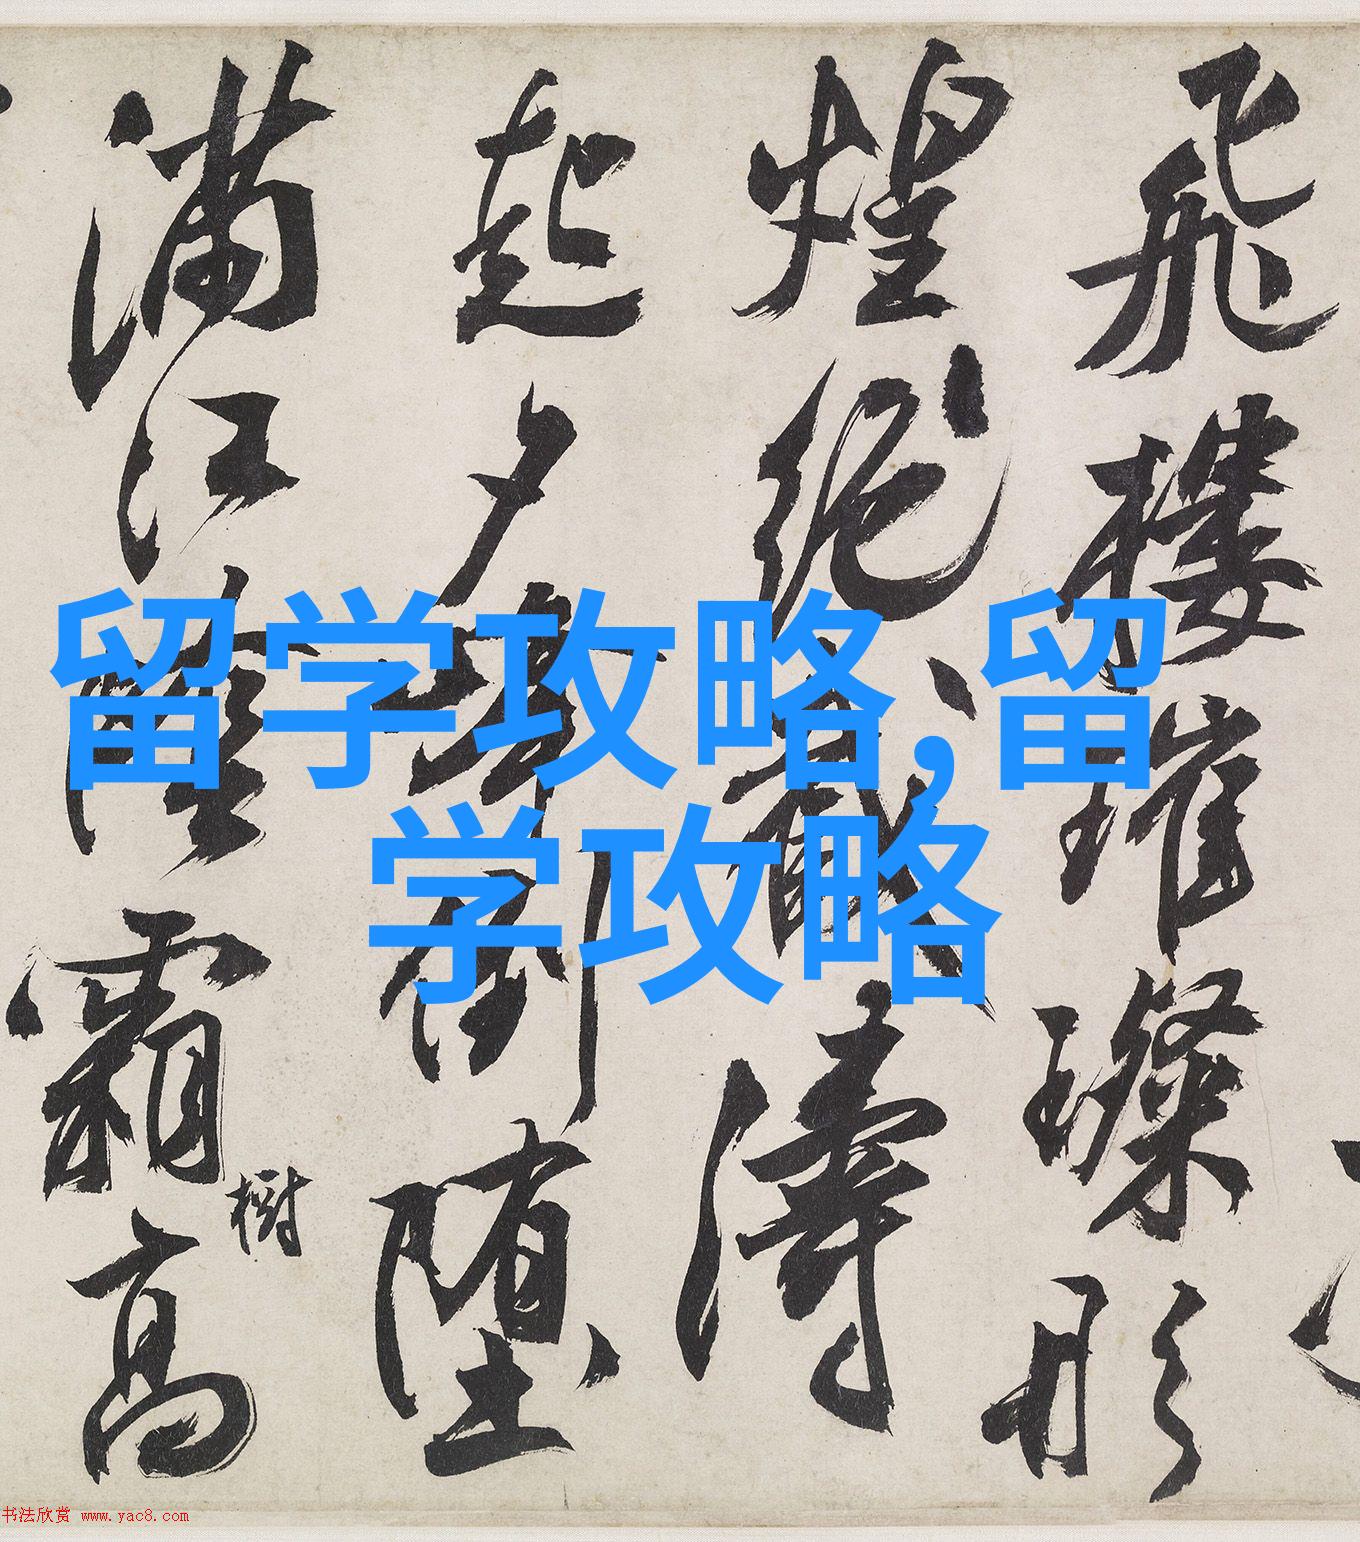 飛樓璀璨彤
煌濤
起夕倒墮
滿江陰霜樹高
留学攻略,留
学攻略
书法欣赏 www.yac8.com